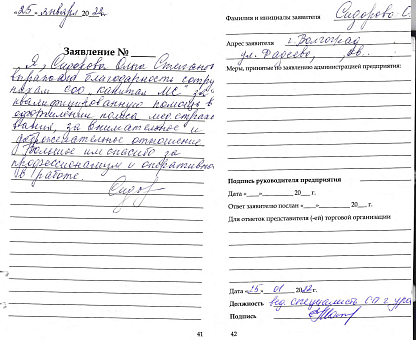 «25» января 2022г.
Заявление №
Я, Сидорова Ольга Степановна
выражаю благодарность сотруд
никам ООО "Капитал МС" за
квалифицированную помощь в
оформлении полиса мед страхо
вания, за внимательное и
доброжелательное отношение.
Большое им спасибо за
профессионализм и оперативность
в работе.
41
Фамилия и инициалы заявителя Сидорова О.
Адрес заявителя г. Волгоград
ул. Фадеева, кв.
Меры, принятые по заявлению администрацией предприятия:
Подпись руководителя предприятия
Дата «___»__________ 20___ г.
Ответ заявителю послан «___»__________ 20___ г.
Для отметок представителя (-ей) торговой организации
Дата «25» 01 2022г.
Должность вед. специалист ОП г.
Подпись
42